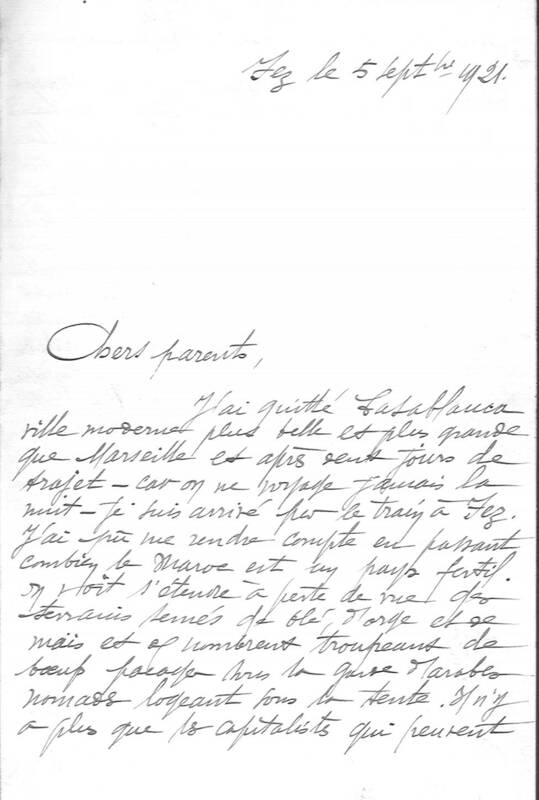 Fez le 5 septbre 1921.
Chers parents,
J'ai quitté Casablanca
ville moderne plus belle et plus grande
que Marseille et après deux jours de
trajet – car on ne voyage jamais la
nuit – je suis arrivé par le train à Fez.
J'ai pu me rendre compte en passant
combien le Maroc est un pays fertil.
On voit s'étendre à perte de vue des
terrains semés de blé, d'orge et de
mais et de nombreux troupeaux de
boeufs pacager sous la garde d'arabes
nomads logeant sous la tente. Il n'y
a plus que les capitalists qui peuvent